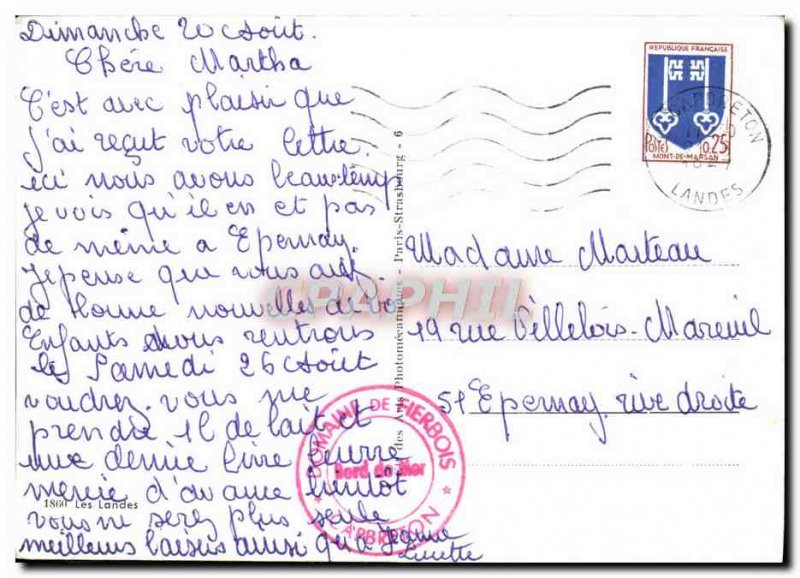 Dimanche 20 Août.
Chére Martha
C'est avec plaisir que
j'ai reçut votre lettre.
ici nous avons beau temp
je vois qu'il en et pas
de même a Epernay.
je pense que vous avez
de bonne nouvelles de vos
Enfants nous rentrons
le Samedi 26 Août
voudrez-vous me
prendre 1l de lait et
une demie livre beurre
mercie d'avance bientot
vous ne serez plus seule
meilleurs baisers ainsi qu'a Jeanne
Lucette
1860 Les Landes
des Arts Photomécaniques - Paris-Strasbourg - 6
DOMAINE DE FIERBOIS
Bord de Mer
CAPBRETON
REPUBLIQUE FRANÇAISE
POSTES 0,25
MONT-DE-MARSAN
CAPBRETON
LANDES
Madame Marteau
19 rue Villebois-Mareuil
51 Epernay. rive droite
CARTAPHILIE